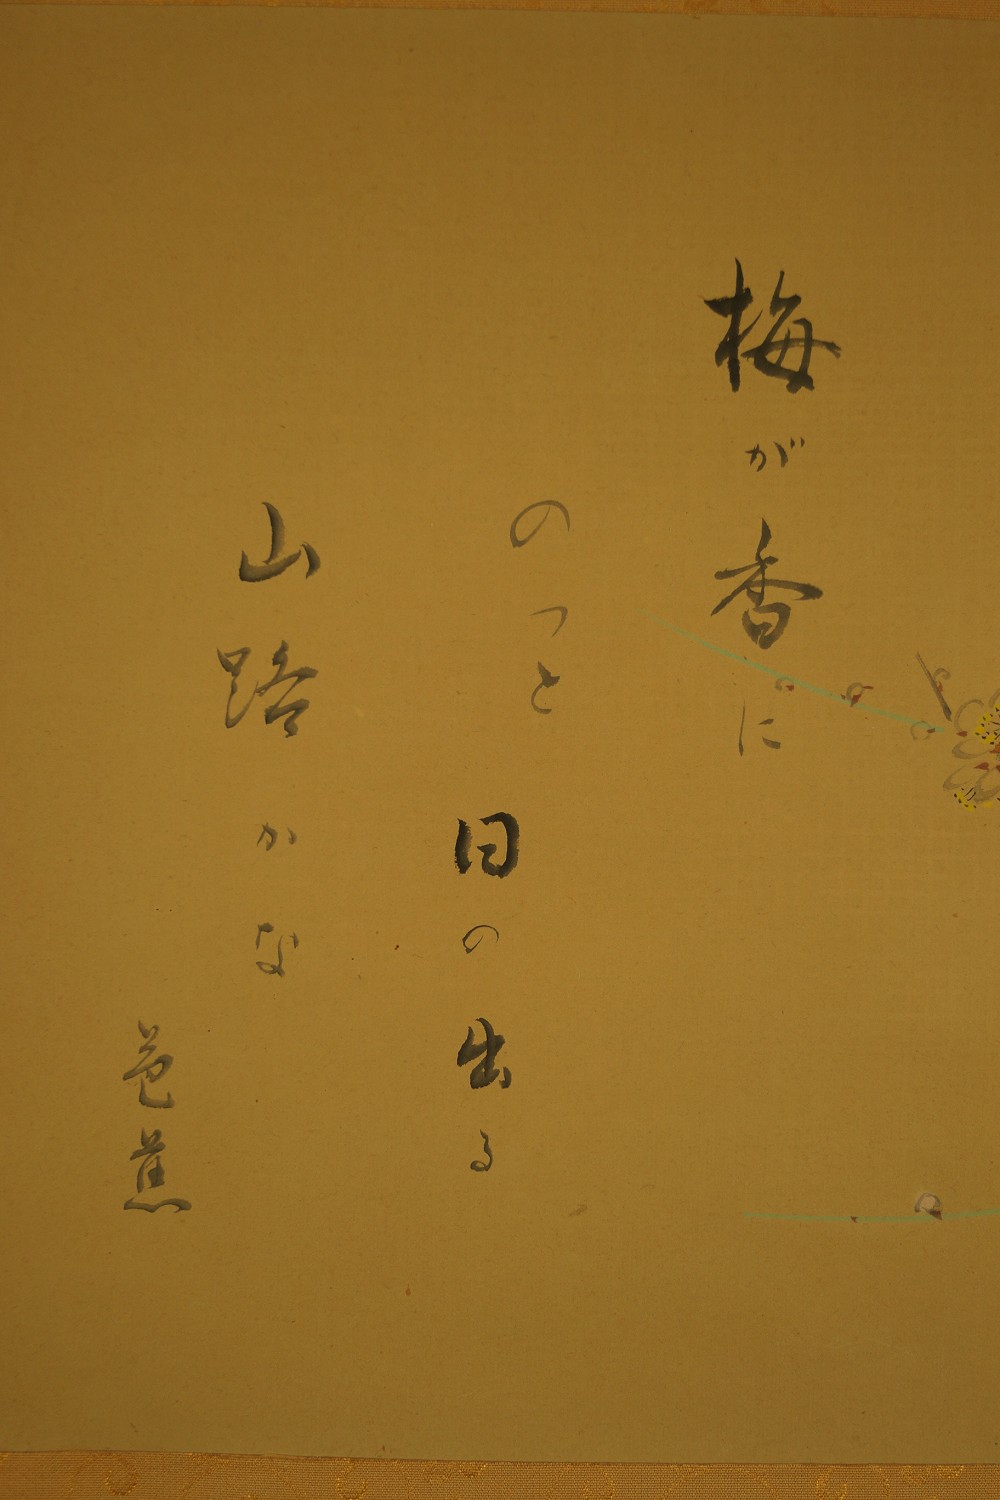 梅が香に
のっと
日の出る
山路かな
芭蕉